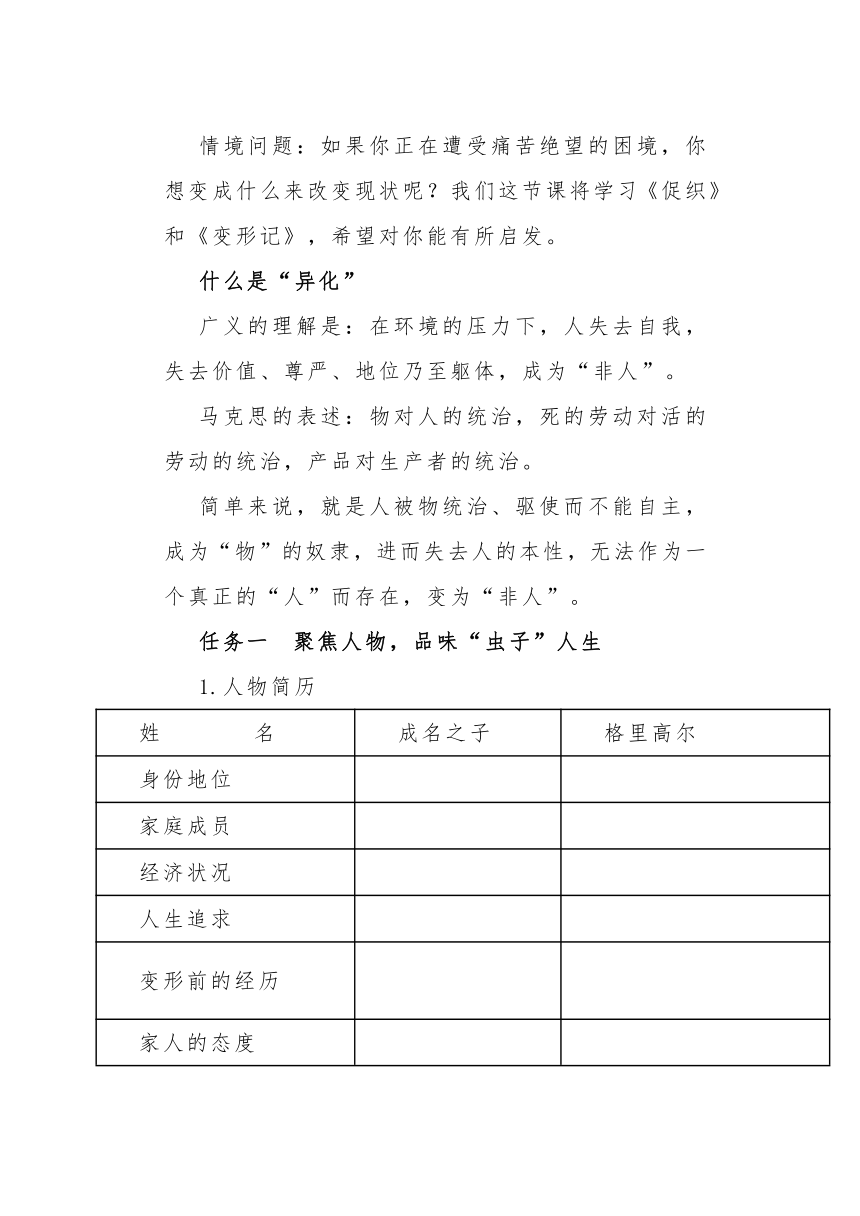 情境问题：如果你正在遭受痛苦绝望的困境，你
想变成什么来改变现状呢？我们这节课将学习《促织》
和《变形记》，希望对你能有所启发。
什么是“异化”
广义的理解是：在环境的压力下，人失去自我，
失去价值、尊严、地位乃至躯体，成为“非人”。
马克思的表述：物对人的统治，死的劳动对活的
劳动的统治，产品对生产者的统治。
简单来说，就是人被物统治、驱使而不能自主，
成为“物”的奴隶，进而失去人的本性，无法作为一
个真正的“人”而存在，变为“非人”。
任务一　聚焦人物，品味“虫子”人生
1.人物简历
姓　　　　名　成名之子　格里高尔
身份地位
家庭成员
经济状况
人生追求
变形前的经历
家人的态度